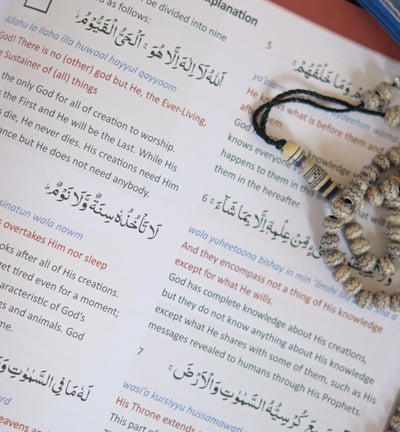 be divided into nine
as follows:
اَللّٰهُ لَاۤ اِلٰهَ اِلَّا هُوَ ۚ اَلْحَیُّ الْقَیُّوْمُ ۚ
Allahu la ilaha illa huwaal hayyul qayyoom
God! There is no (other) god but He, the Ever-Living,
Sustainer of (all) things
the only God for all of creation to worship.
the First and He will be the Last. While His
die, He never dies. His creations need Him
but He does not need anybody.
لَا تَاْخُذُهٗ سِنَةٌ وَّلَا نَوْمٌ ؕ
sinatun wala nawm
overtakes Him nor sleep
looks after all of His creations.
get tired even for a moment;
characteristic of God's
and animals. God
لَهٗ مَا فِی السَّمٰوٰتِ
planation
5
وَمَا خَلْفَهُمْ ۚ
what is before them
knows everyone
knowledge
happens to them in this
them in the hereafter.
6
مِّنْ عِلْمِهٖۤ اِلَّا بِمَا شَآءَ ۚ
wala yuheetoona bishay in min 'ilmihi
And they encompass not a thing of His knowledge
except for what He wills.
God has complete knowledge about His creations,
but they do not know anything about His knowledge
except what He shares with some of them, such as His
messages revealed to humans through His Prophets.
7
كُرْسِیُّهُ السَّمٰوٰتِ وَالْاَرْضَ ۚ
wasi'a kursiyyu hussamawati
His Throne extends
This part of